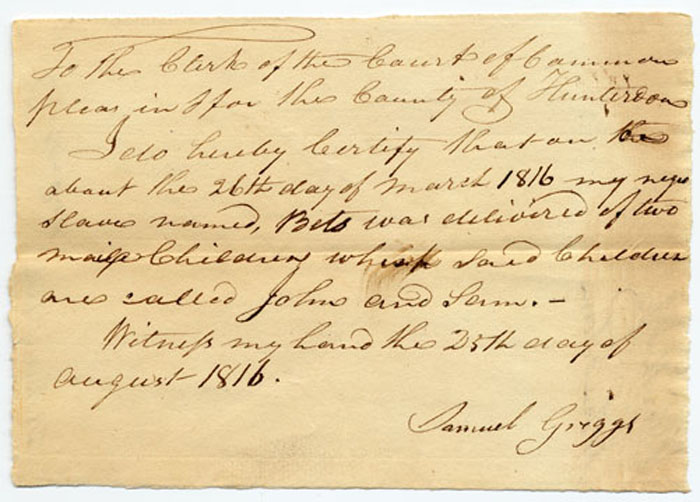 To the Clerk of the Court of Common
pleas in & for the County of Hunterdon
I do hereby Certify that on the
about the 26th day of march 1816 my negro
slave named, Bets was delivered of two
male Children which said Children
are called John and Sam. –
Witness my hand the 25th day of
august 1816.
Samuel Griggs